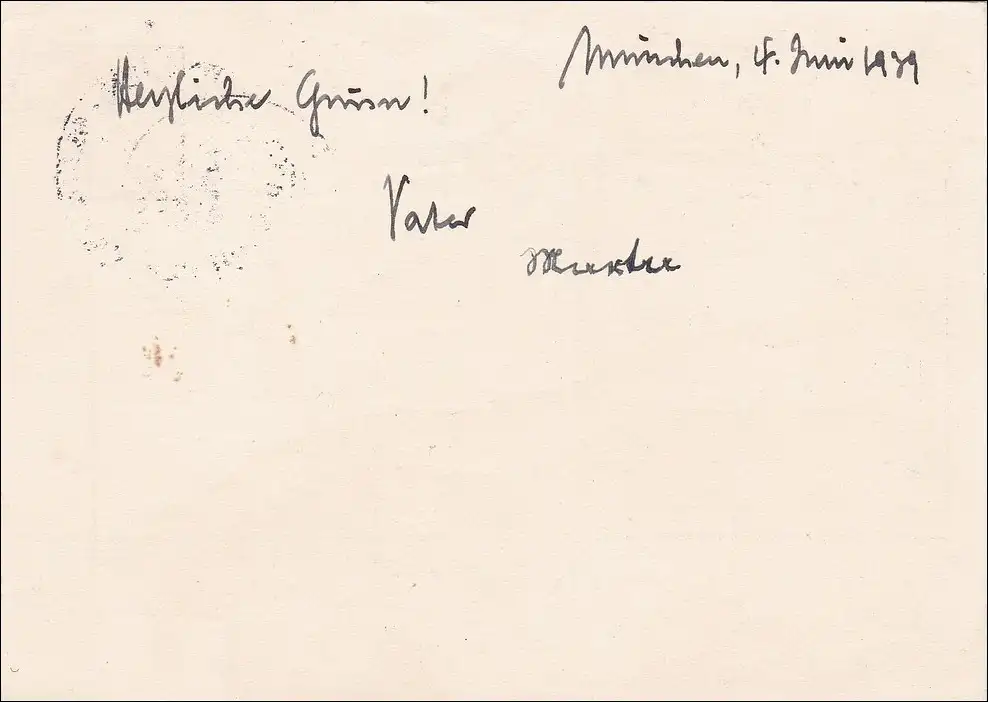 München, 4. Juni 1939
Herzliche Grüsse!
Vater
Martha